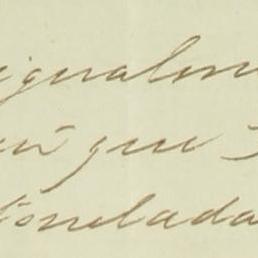 igualm
que
tonelada